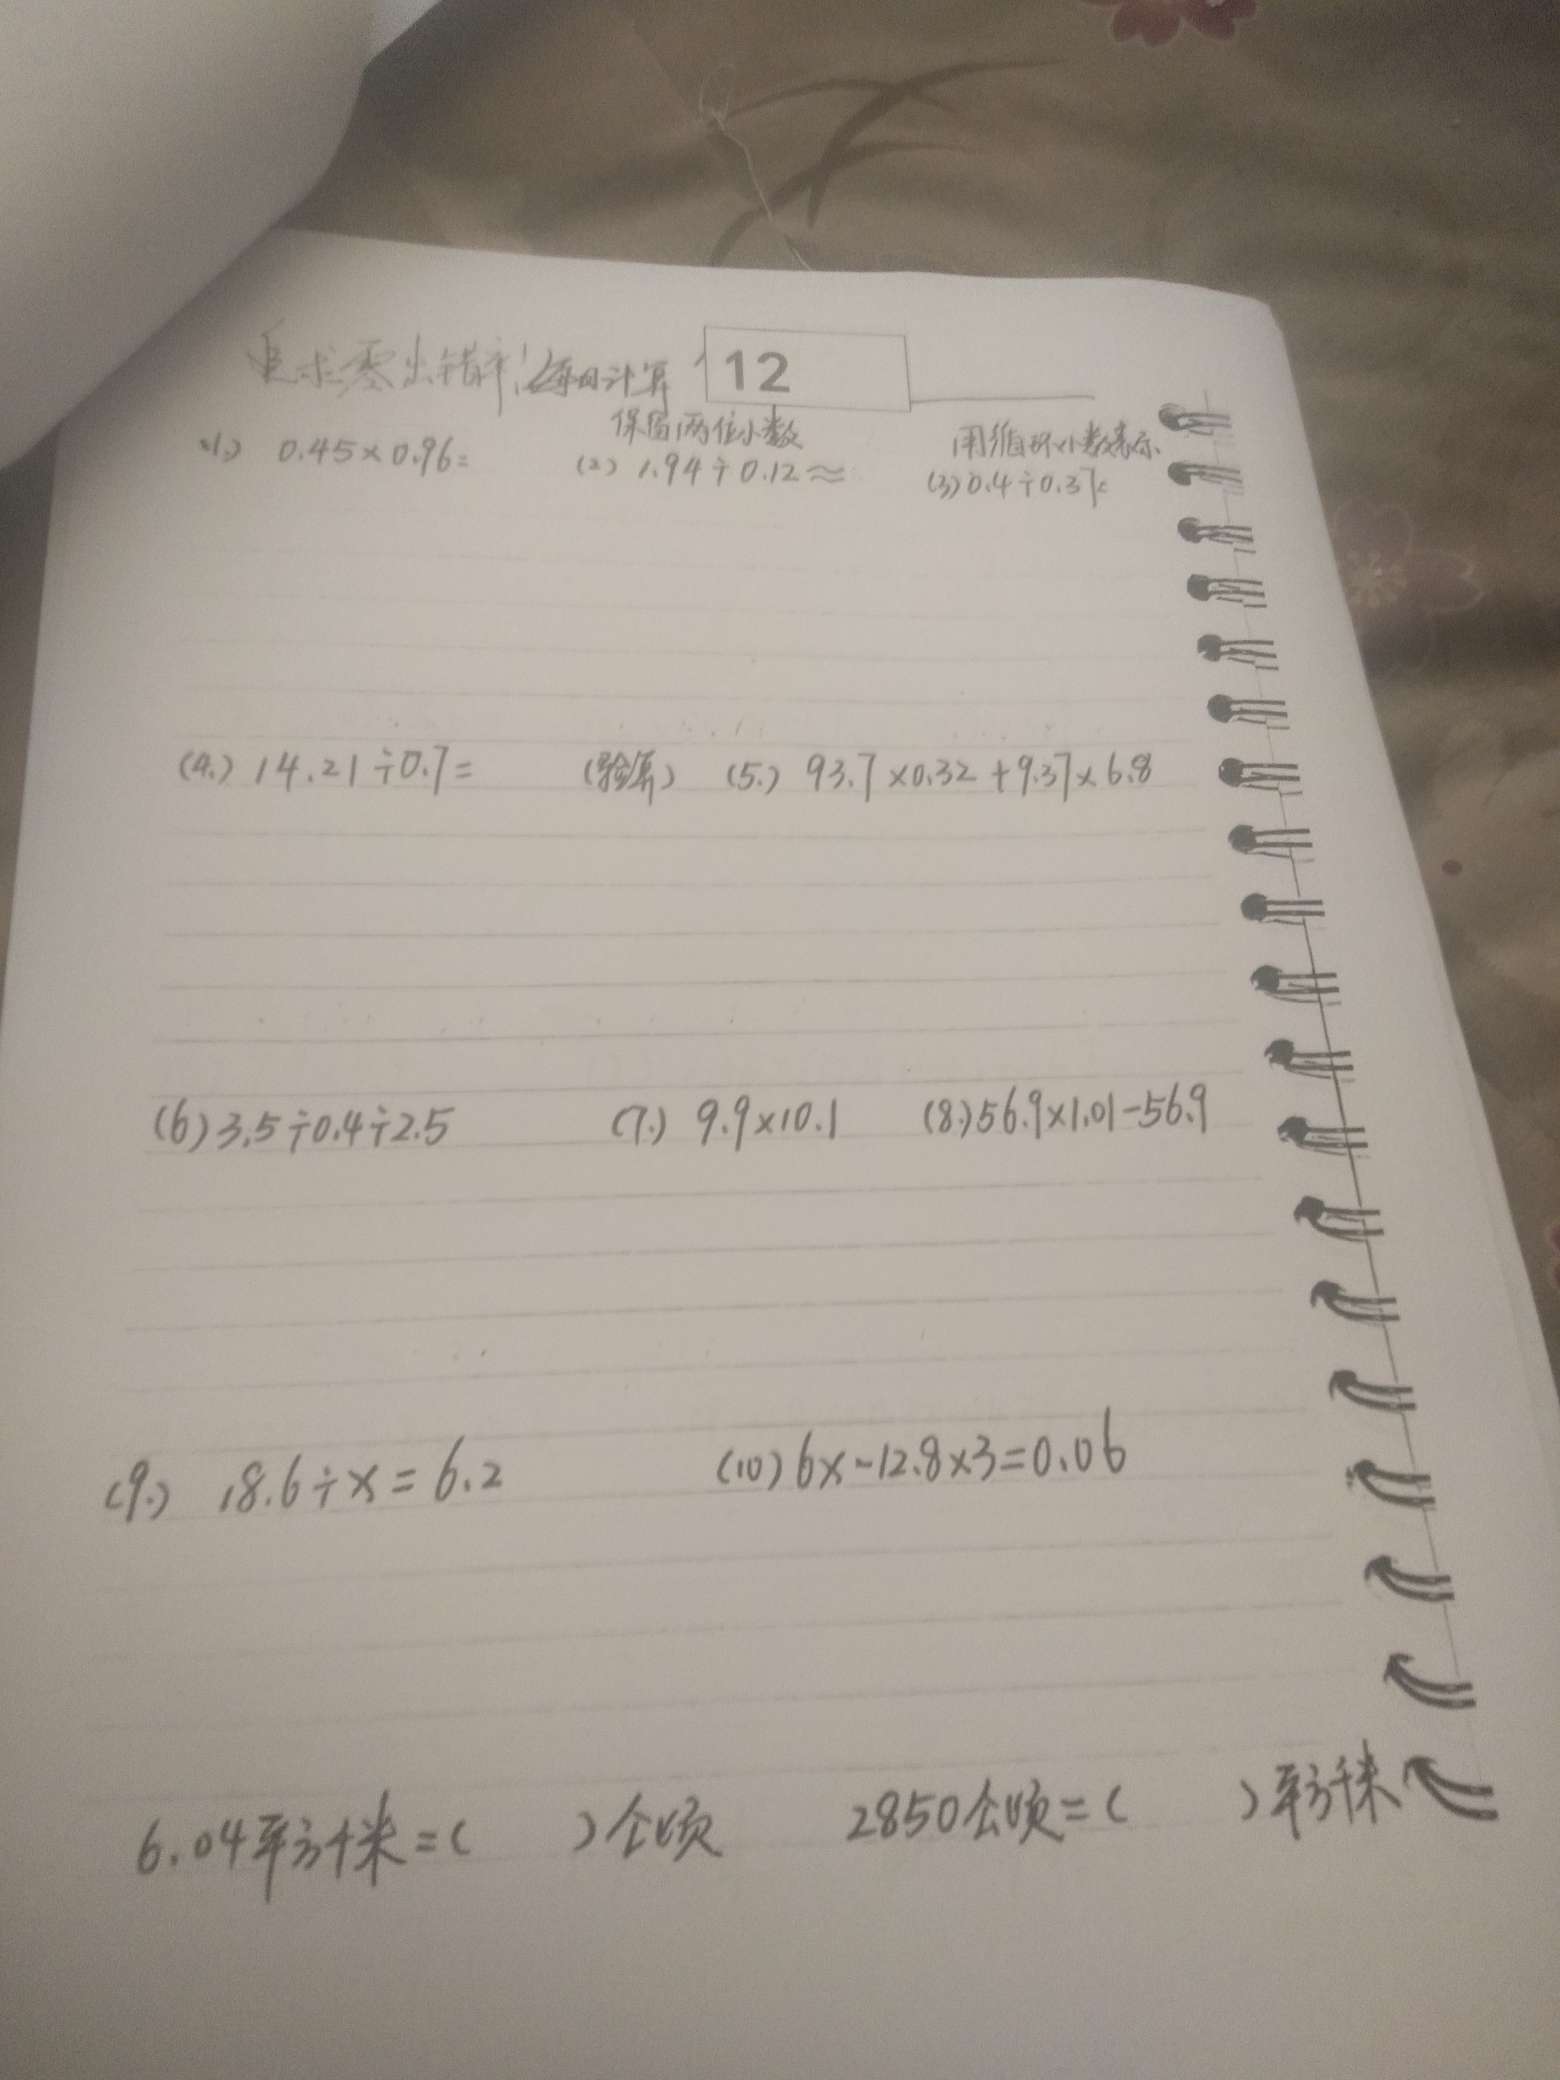 追求零出错率!每日计算 12
保留两位小数 用循环小数表示
(1.) 0.45×0.96= (2) 1.94÷0.12≈ (3) 0.4÷0.37=
(4.) 14.21÷0.7= (验算) (5.) 93.7×0.32+9.37×6.8
(6) 3.5÷0.4÷2.5 (7.) 9.9×10.1 (8.) 56.9×1.01-56.9
(9.) 18.6÷x=6.2 (10) 6x-12.8×3=0.06
6.04平方千米=( )公顷 2850公顷=( )平方千米